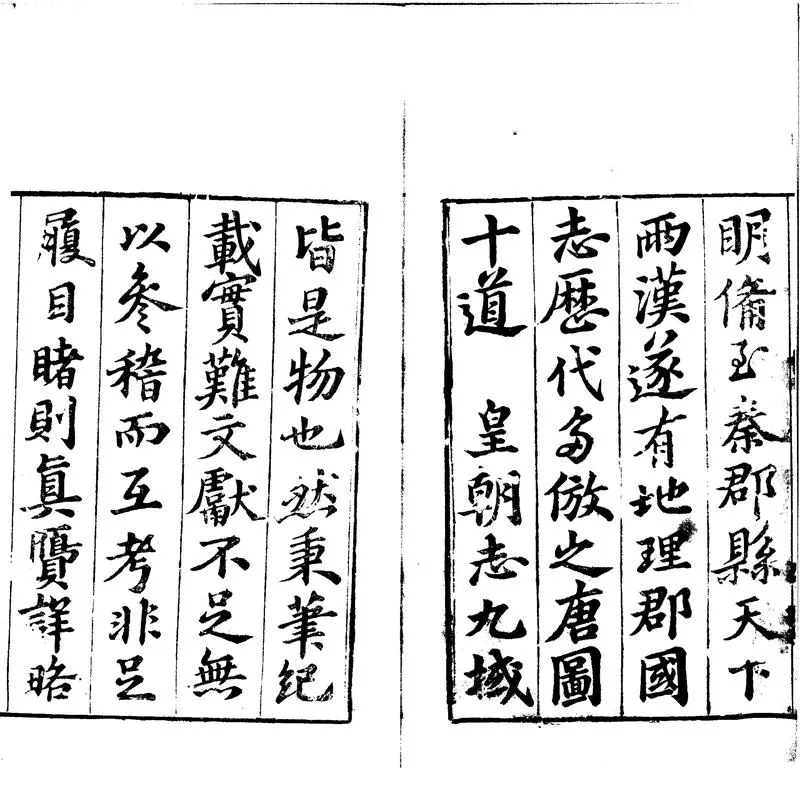 明備至秦郡縣天下
兩漢遂有地理郡國
志歷代多倣之唐圖
十道　皇朝志九域
皆是物也然秉筆紀
載實難文獻不足無
以參稽而互考非足
履目睹則眞贋詳略